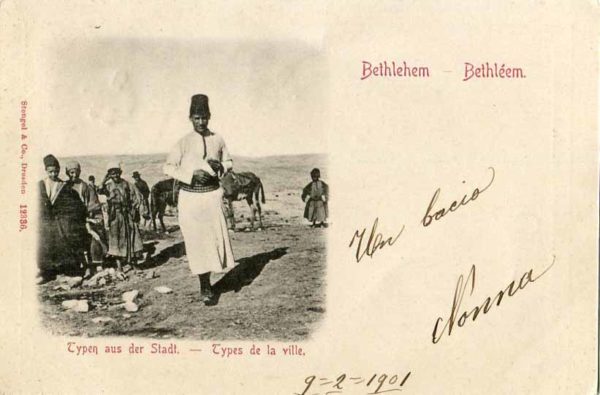 Bethlehem – Bethléem.
Stengel & Co., Dresden 12336.
Un bacio
Nonna
Typen aus der Stadt. — Types de la ville.
9=2=1901